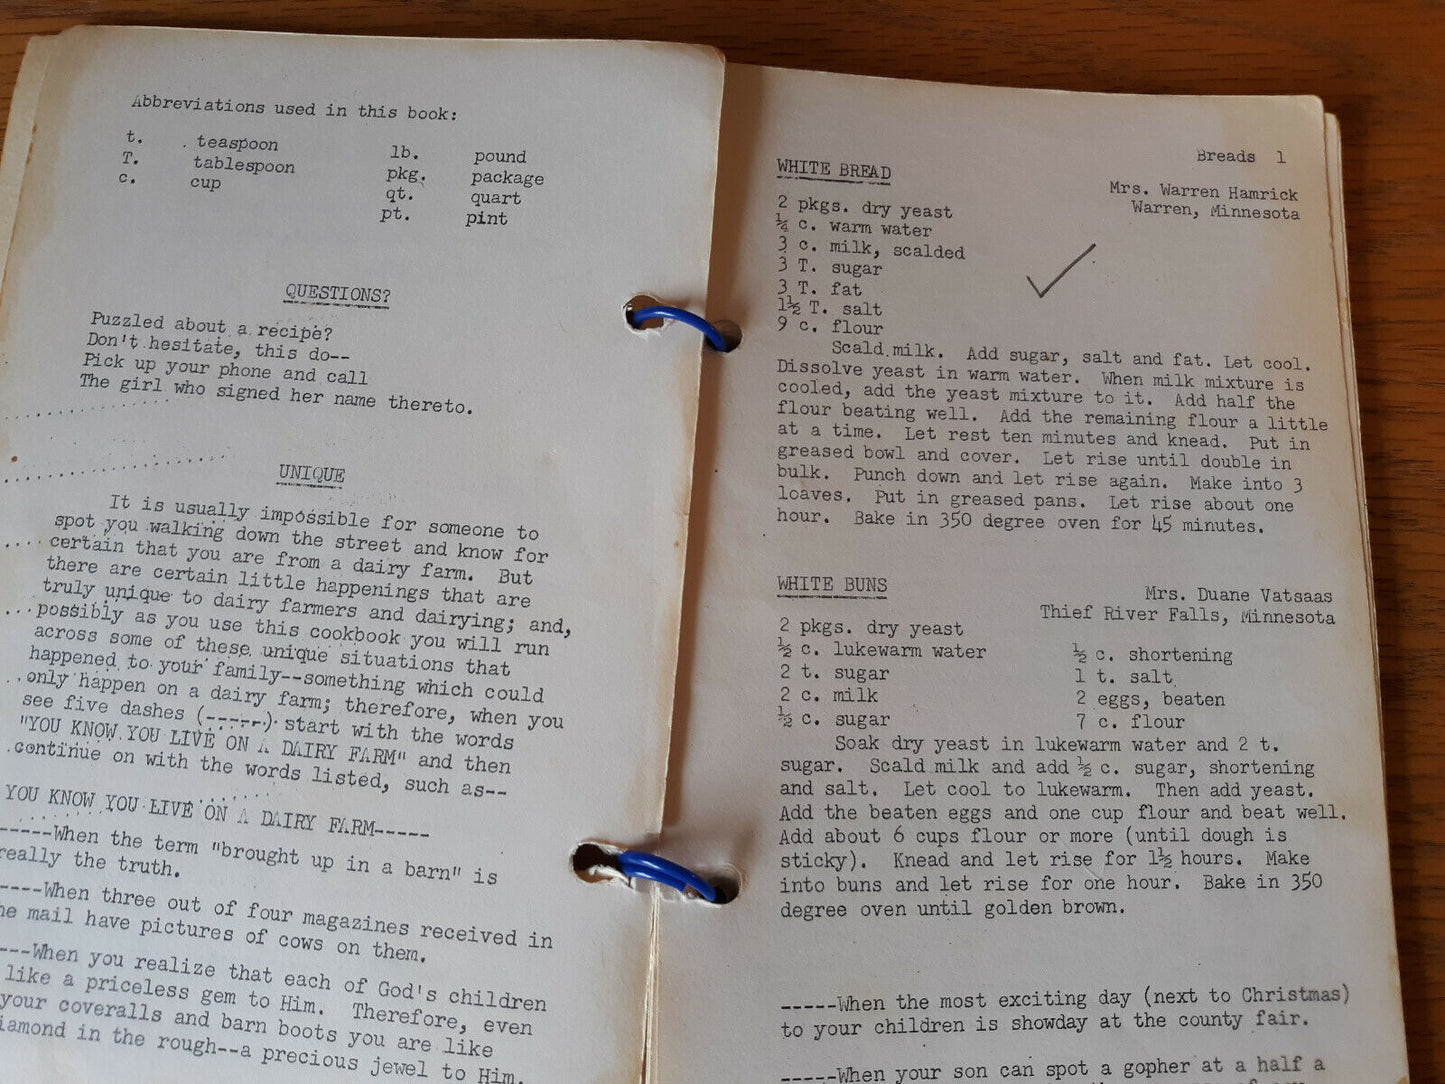 Abbreviations used in this book:
t. teaspoon lb. pound
T. tablespoon pkg. package
c. cup qt. quart
pt. pint
QUESTIONS?
Puzzled about a recipe?
Don't hesitate, this do--
Pick up your phone and call
The girl who signed her name thereto.
UNIQUE
It is usually impossible for someone to
spot you walking down the street and know for
certain that you are from a dairy farm. But
there are certain little happenings that are
truly unique to dairy farmers and dairying; and,
possibly as you use this cookbook you will run
across some of these unique situations that
happened to your family--something which could
only happen on a dairy farm; therefore, when you
see five dashes (-----) start with the words
"YOU KNOW YOU LIVE ON A DAIRY FARM" and then
continue on with the words listed, such as--
YOU KNOW YOU LIVE ON A DAIRY FARM-----
-----When the term "brought up in a barn" is
really the truth.
----When three out of four magazines received in
he mail have pictures of cows on them.
---When you realize that each of God's children
like a priceless gem to Him. Therefore, even
your coveralls and barn boots you are like
iamond in the rough--a precious jewel to Him.
Breads 1
WHITE BREAD
Mrs. Warren Hamrick
Warren, Minnesota
2 pkgs. dry yeast
¼ c. warm water
3 c. milk, scalded
3 T. sugar
3 T. fat
1½ T. salt
9 c. flour
Scald milk. Add sugar, salt and fat. Let cool.
Dissolve yeast in warm water. When milk mixture is
cooled, add the yeast mixture to it. Add half the
flour beating well. Add the remaining flour a little
at a time. Let rest ten minutes and knead. Put in
greased bowl and cover. Let rise until double in
bulk. Punch down and let rise again. Make into 3
loaves. Put in greased pans. Let rise about one
hour. Bake in 350 degree oven for 45 minutes.
WHITE BUNS
Mrs. Duane Vatsaas
Thief River Falls, Minnesota
2 pkgs. dry yeast
½ c. lukewarm water ½ c. shortening
2 t. sugar 1 t. salt
2 c. milk 2 eggs, beaten
½ c. sugar 7 c. flour
Soak dry yeast in lukewarm water and 2 t.
sugar. Scald milk and add ½ c. sugar, shortening
and salt. Let cool to lukewarm. Then add yeast.
Add the beaten eggs and one cup flour and beat well.
Add about 6 cups flour or more (until dough is
sticky). Knead and let rise for 1½ hours. Make
into buns and let rise for one hour. Bake in 350
degree oven until golden brown.
-----When the most exciting day (next to Christmas)
to your children is showday at the county fair.
-----When your son can spot a gopher at a half a